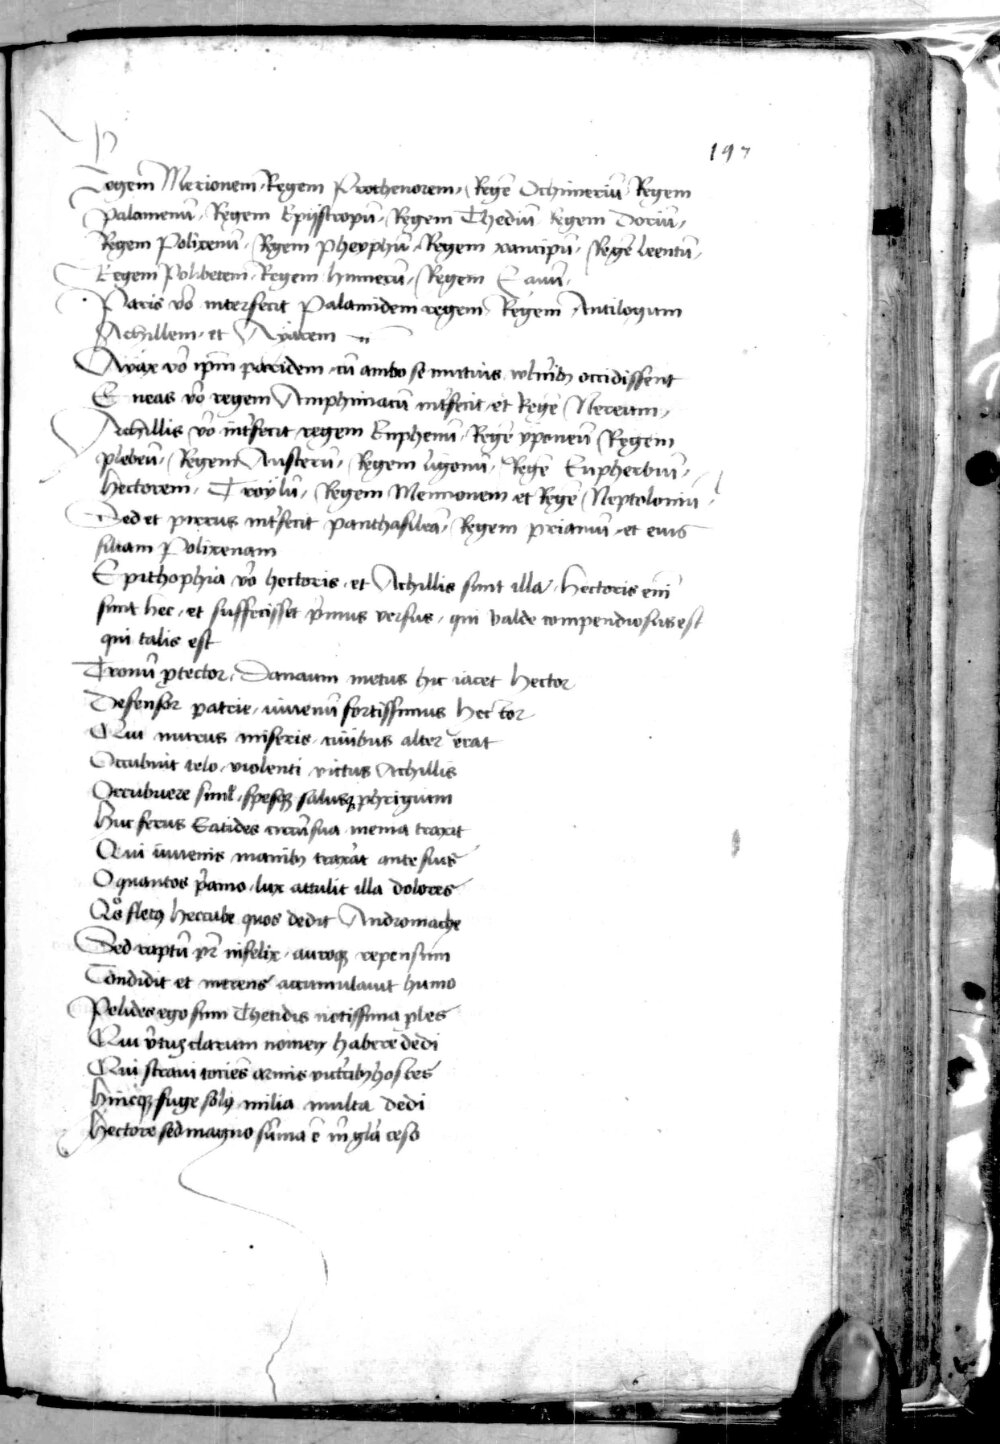 197
Regem Merionem, Regem Prothenorem, Regē Ochimeriū Regem
Palamenū, Regem Epijstropū, Regem Thediū Regem Doriū,
Regem Polixenū, Regem pheyphū, Regem xancipū, Regē leentū,
Regem Polibetem, Regem hunnerū, Regem
Paris vō interfecit Palamidem regem, Regem Antilogum
Achillem, et Ayacem
Ayax vō ipm̄ paridem, cū ambo se mutuis occidissent
Eneas vō regem Amphimacū int'fecit et Regē Nereum,
Achilles vō int'fecit regem Euphemū, Regē yponeū Regem
plebeū, Regem Austerū, Regem ligonū, Regē Eupherbiū,
hectorem, Troylū, Regem Mennonem et Regē Neptolomū
Sed et pirrus int'fecit panthasileā, Regem priamū, et eius
filiam Polixenam
Epithophia vō hectoris, et Achillis sunt illa, hectoris em̄
sunt hec, et suffecisset p̄mus versus, qui valde compendiosus est
qui talis est
Troum̄ ꝓtector, Danaum metus hic iacet hector
Defensor patrie, iuuenū fortissimus hector
Qui murus miseris, ciuibus alter erat
Occubuit telo, violenti victus Achillis
Occubuere siml̄, spesqꝫ salusqꝫ phrigum
hūc ferus Eatides circū sua menia traxit
Qui iuuenis manibꝫ traxāt ante suis
O quantos p̄amo, lux attulit illa dolores
Qͦs fletꝰ heccube quos dedit Andromache
Sed raptū pr̄ infelix, auroqꝫ repensum
Condidit et merens accumulauit humo
Pelides ego sum Thetidis notissima ꝓles
Cui v̄tus clarum nomen habere dedi
Qui straui tociēs armis victcibꝫ hostes
Hincqꝫ fuge solꝰ milia multa dedi
Hectore sed magno sūma ē m̄ glā ceso